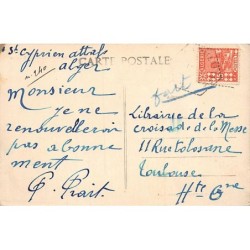 St Cyprien attafs
alger
CARTE POSTALE
Monsieur
je ne
renouvellerai
pas abonne
ment
Librairie de la
croisade de la Messe
11 Rue tolosane
Toulouse
Hte Gne